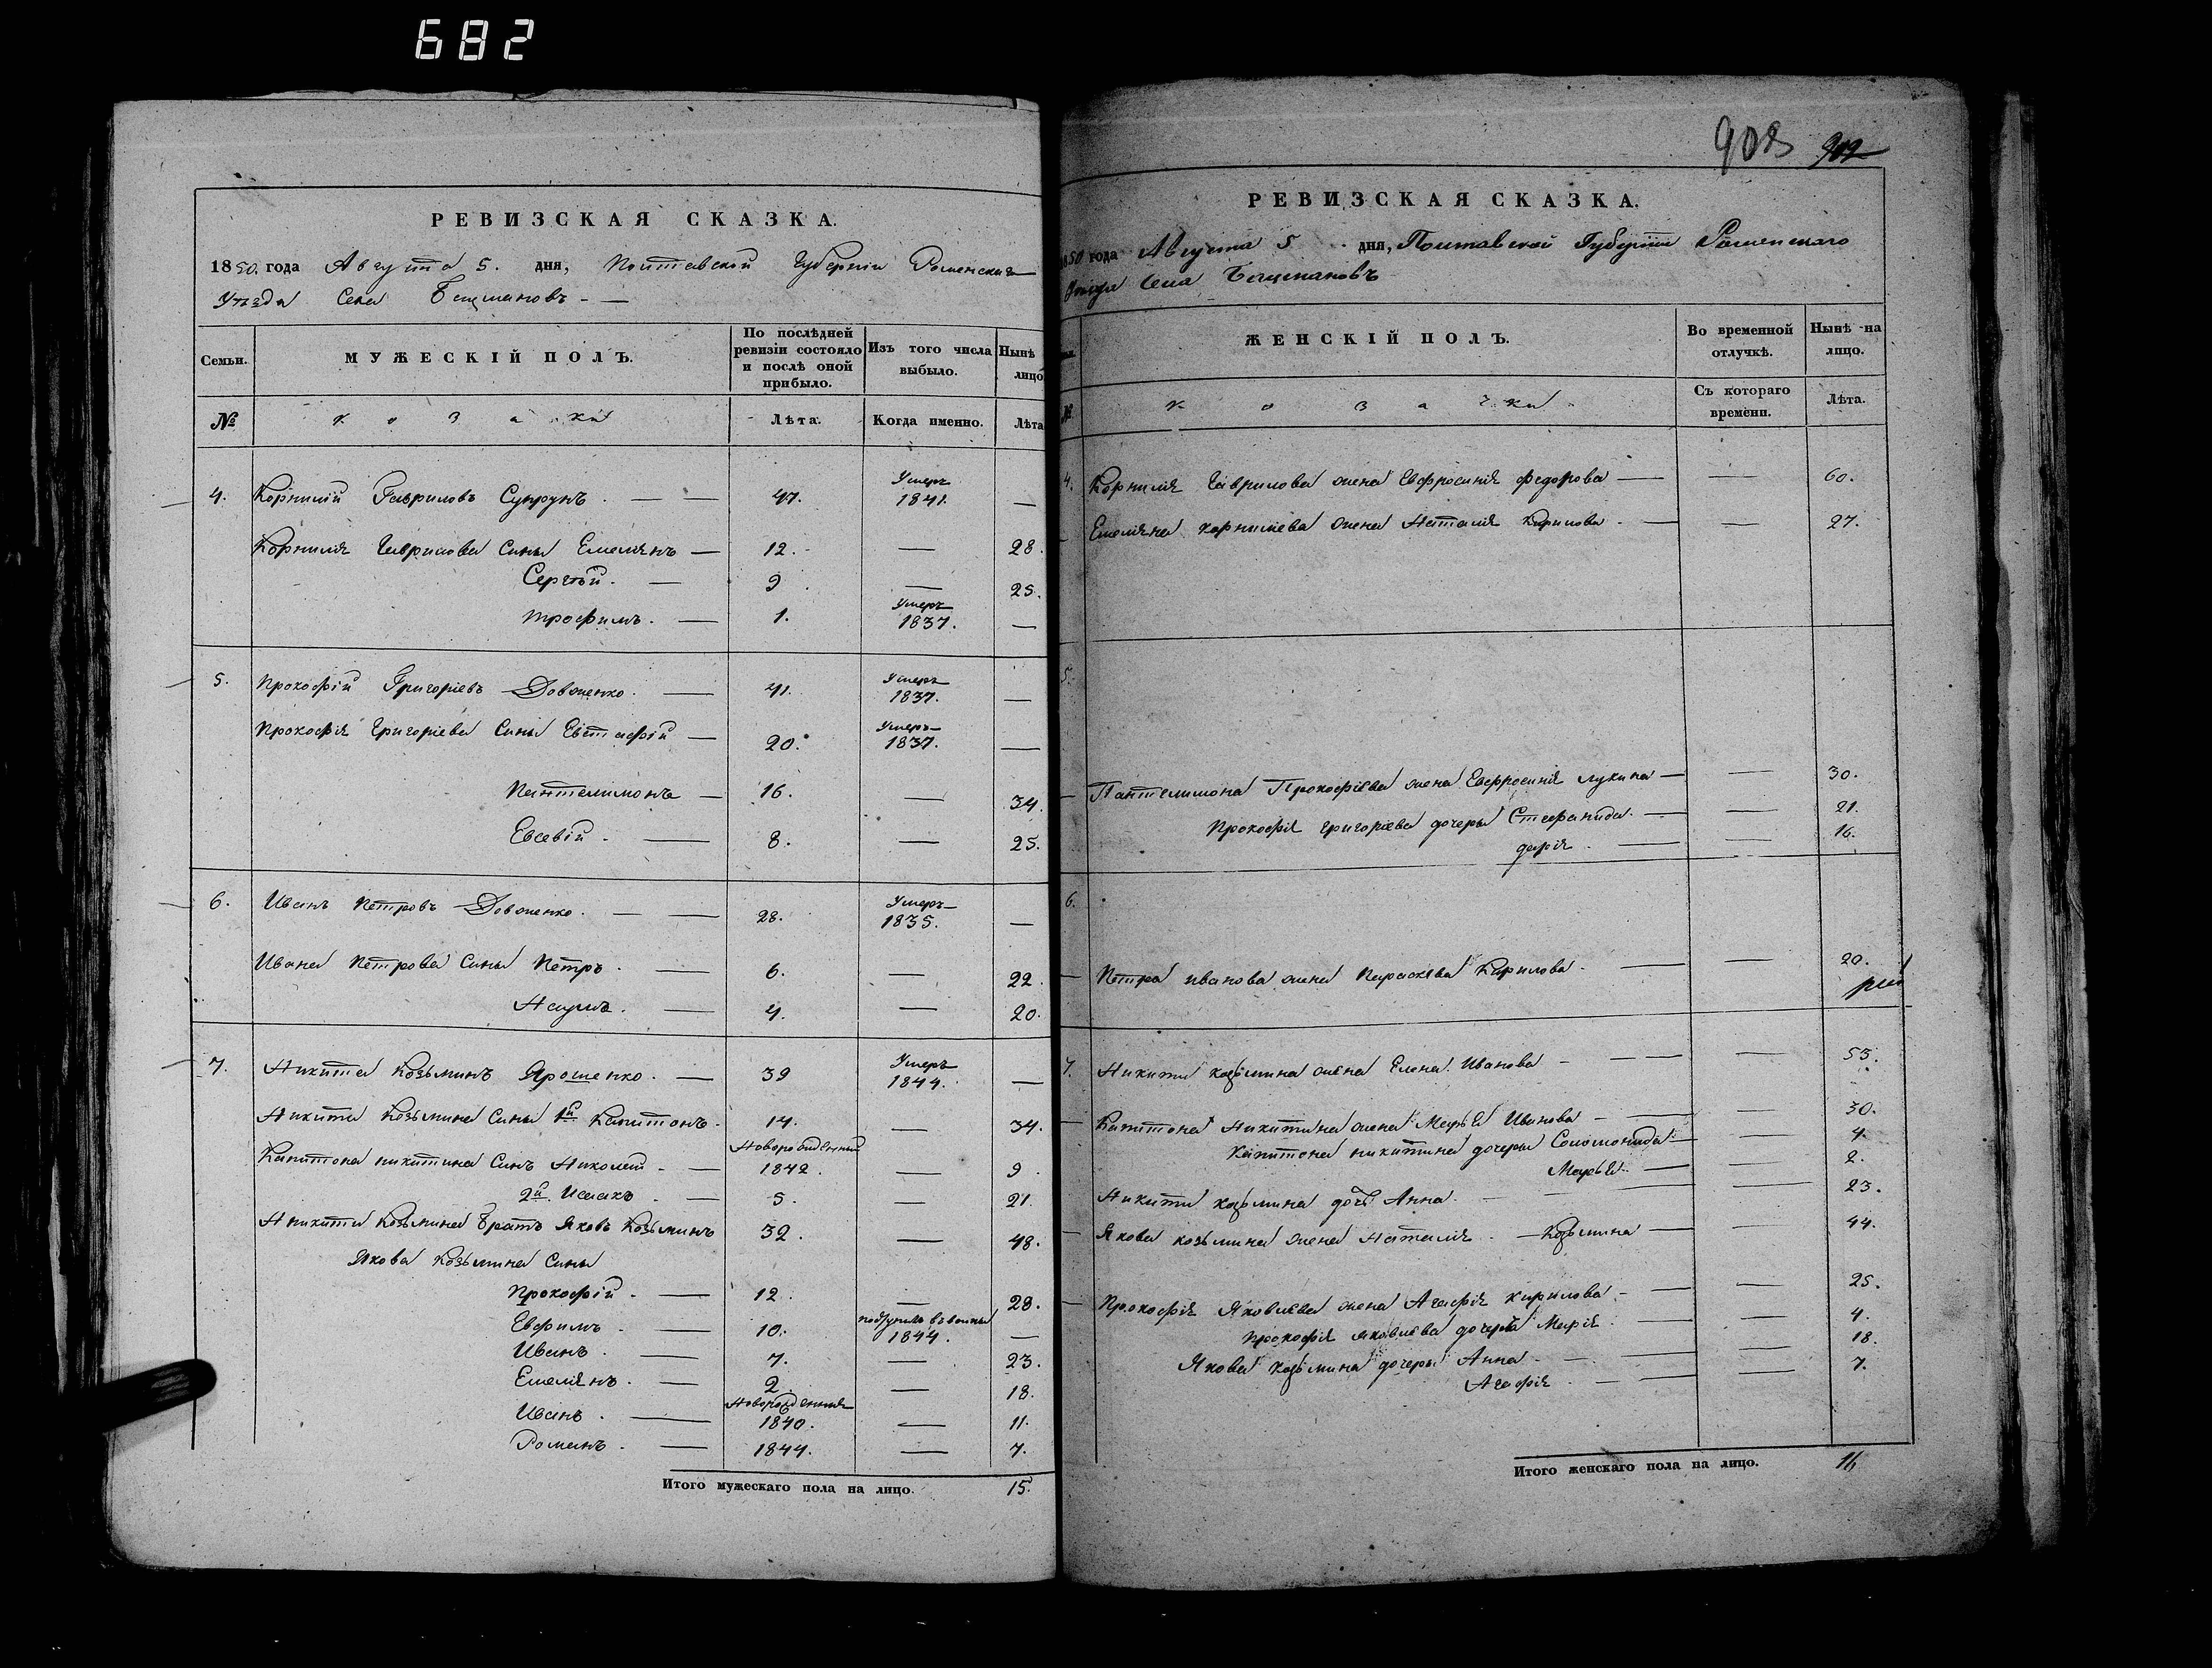 682
РЕВИЗСКАЯ СКАЗКА.
1850. года Августа 5. дня, Полтавской Губерніи Роменскаго
Уѣзда Села Бацмановъ
Семьи. МУЖЕСКІЙ ПОЛЪ. По послѣдней ревизіи состояло и послѣ оной прибыло. Изъ того числа выбыло. Нынѣ лицо
№ Козаки Лѣта. Когда именно. Лѣта
4. Корнилій Гавриловъ Супрунъ. 47. Умеръ 1841. —
Корнилія Гаврилова Сины Емеліянъ — 12. — 28.
Сергѣй. — 9 — 25.
Трофимъ. — 1. Умеръ 1837. —
5. Прокофій Григоріевъ Довженко. — 41. Умеръ 1837. —
Прокофія Григоріева Сины Евстафій — 20. Умеръ 1837. —
Пантелимонъ — 16. — 34.
Евсевій. — 8. — 25.
6. Иванъ Петровъ Довженко. — 28. Умеръ 1835. —
Ивана Петрова Сины Петръ. — 6. — 22.
Наумъ. — 4. — 20.
7. Никита Козьминъ Ярошенко. — 39 Умеръ 1844. —
Никиты Козьмина Сины 1й Капитонъ. 14. — 34.
Капитона Никитина Синъ Николай. — Новорожденный 1842. — 9.
2й Исаакъ. — 5. — 21.
Никиты Козьмина Братъ Яковъ Козьминъ 32. — 48.
Якова Козьмина Сины
Прокофій. — 12. — 28.
Евфимъ. — 10. 1844. —
Иванъ. — 7. — 23.
Емеліянъ. — 2. — 18.
Иванъ. — Новорожденный 1840. — 11.
Романъ. — 1844. — 7.
Итого мужескаго пола на лицо. 15.
908 909
РЕВИЗСКАЯ СКАЗКА.
1850 года Августа 5 дня, Полтавской Губерніи Роменскаго
Уѣзда Села Бацмановъ
ЖЕНСКІЙ ПОЛЪ. Во временной отлучкѣ. Нынѣ на лицо.
№ Козачки Съ котораго времени. Лѣта.
4. Корнилія Гаврилова жена Евфросинія Федорова — — 60.
Емеліяна Корниліева жена Наталія Кирилова. — — 27.
5.
Пантелимона Прокофіева жена Евфросинія Лукина — — 30.
Прокофія Григоріева дочеры Стефанида. — — 21.
Дарія. — — 16.
6.
Петра Иванова жена Параскева Кирилова. — — 20.
7. Никиты Козьмина жена Елена Иванова — — 53.
Капитона Никитина жена Марья Иванова — — 30.
Капитона Никитина дочеры Соломонида — — 4.
Марья — — 2.
Никиты Козьмина дочь Анна. — — 23.
Якова Козьмина жена Наталія. Козьмина — — 44.
Прокофія Яковлева жена Агафія Кирилова. — — 25.
Прокофія Яковлева дочерь Марія. — — 4.
Якова Козьмина дочеры Анна. — — 18.
Агафія. — — 7.
Итого женскаго пола на лицо. 16